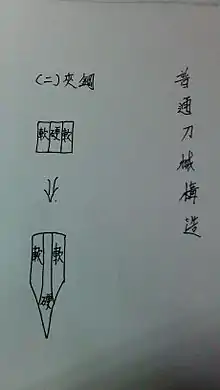 普通刀械構造
(二)夾鋼
軟硬軟
軟 軟
硬